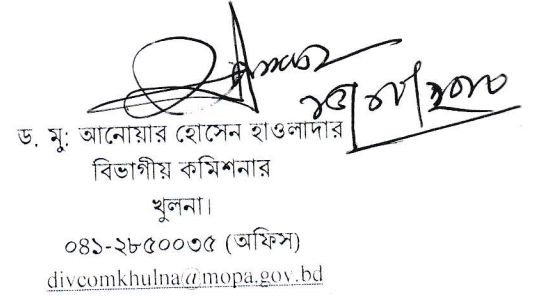 ড. মু: আনোয়ার হোসেন হাওলাদার
বিভাগীয় কমিশনার
খুলনা।
০৪১-২৮৫০০৩৫ (অফিস)
divcomkhulna@mopa.gov.bd